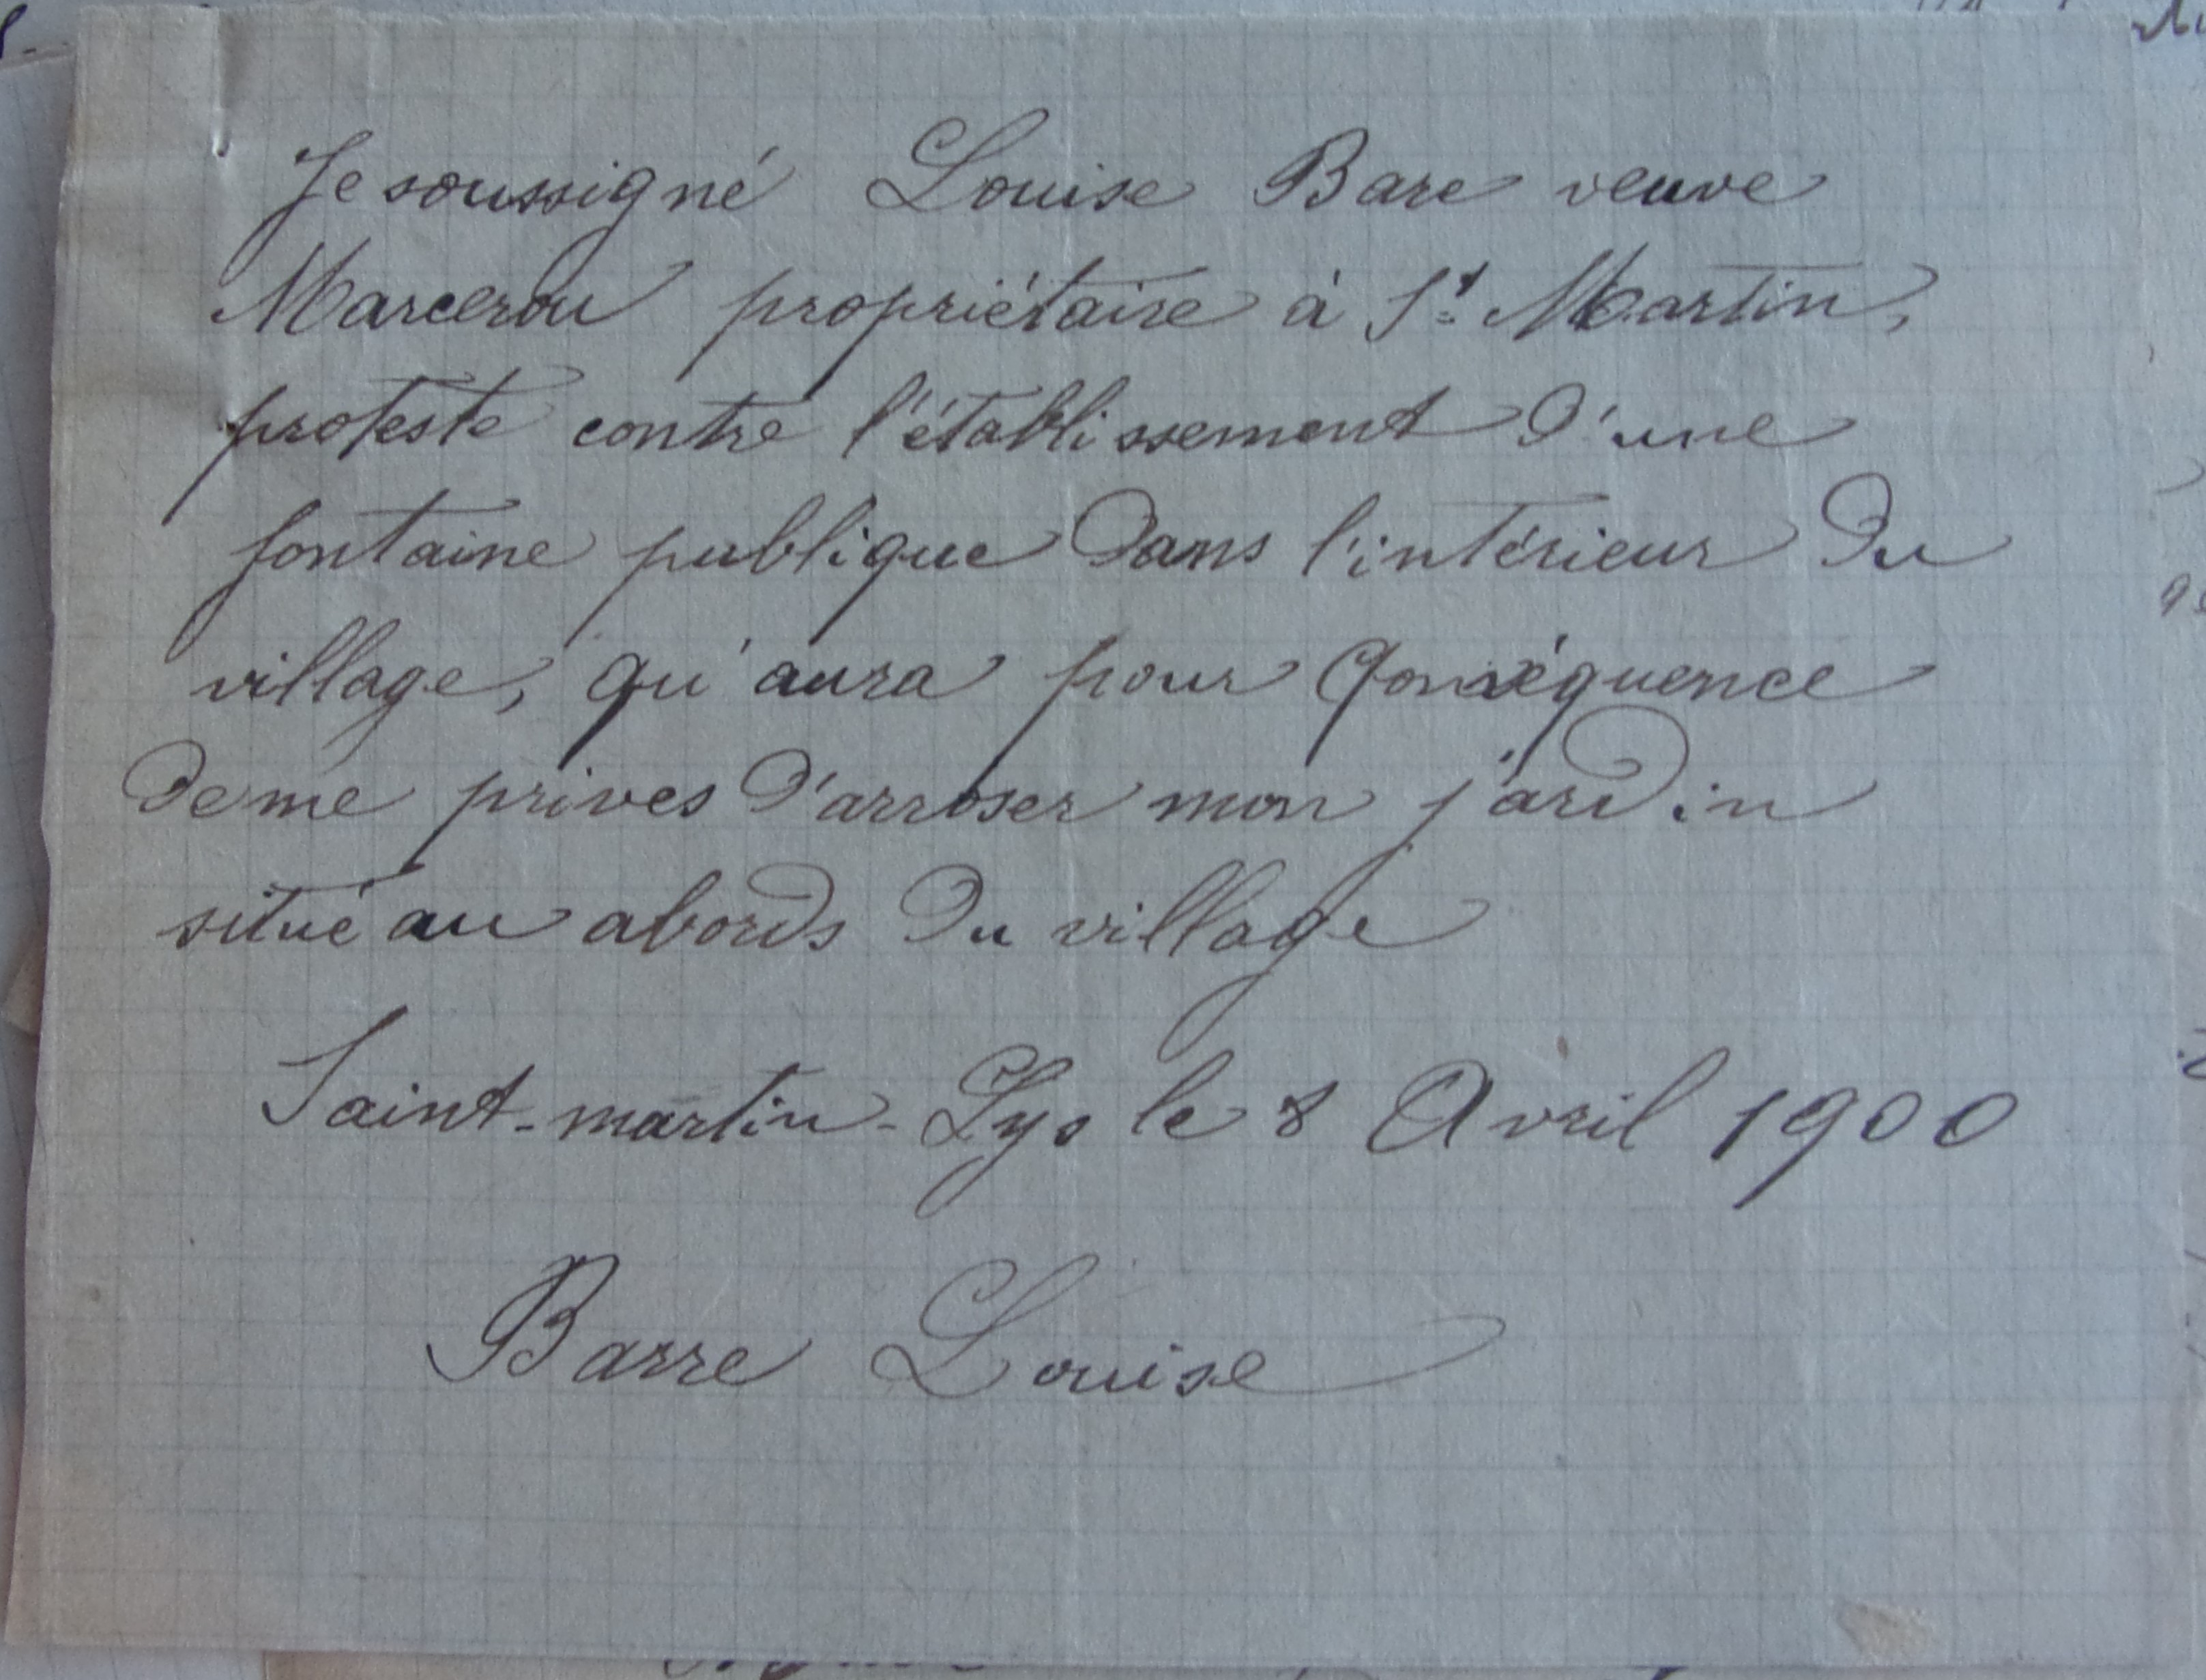 Je soussigné Louise Bare veuve
Marcerou propriétaire à St Martin,
proteste contre l'établissement d'une
fontaine publique dans l'intérieur du
village, qu'aura pour qonséquence
de me prives d'arroser mon jardin
situé au abords du village
Saint-martin-Lys le 8 Avril 1900
Barre Louise